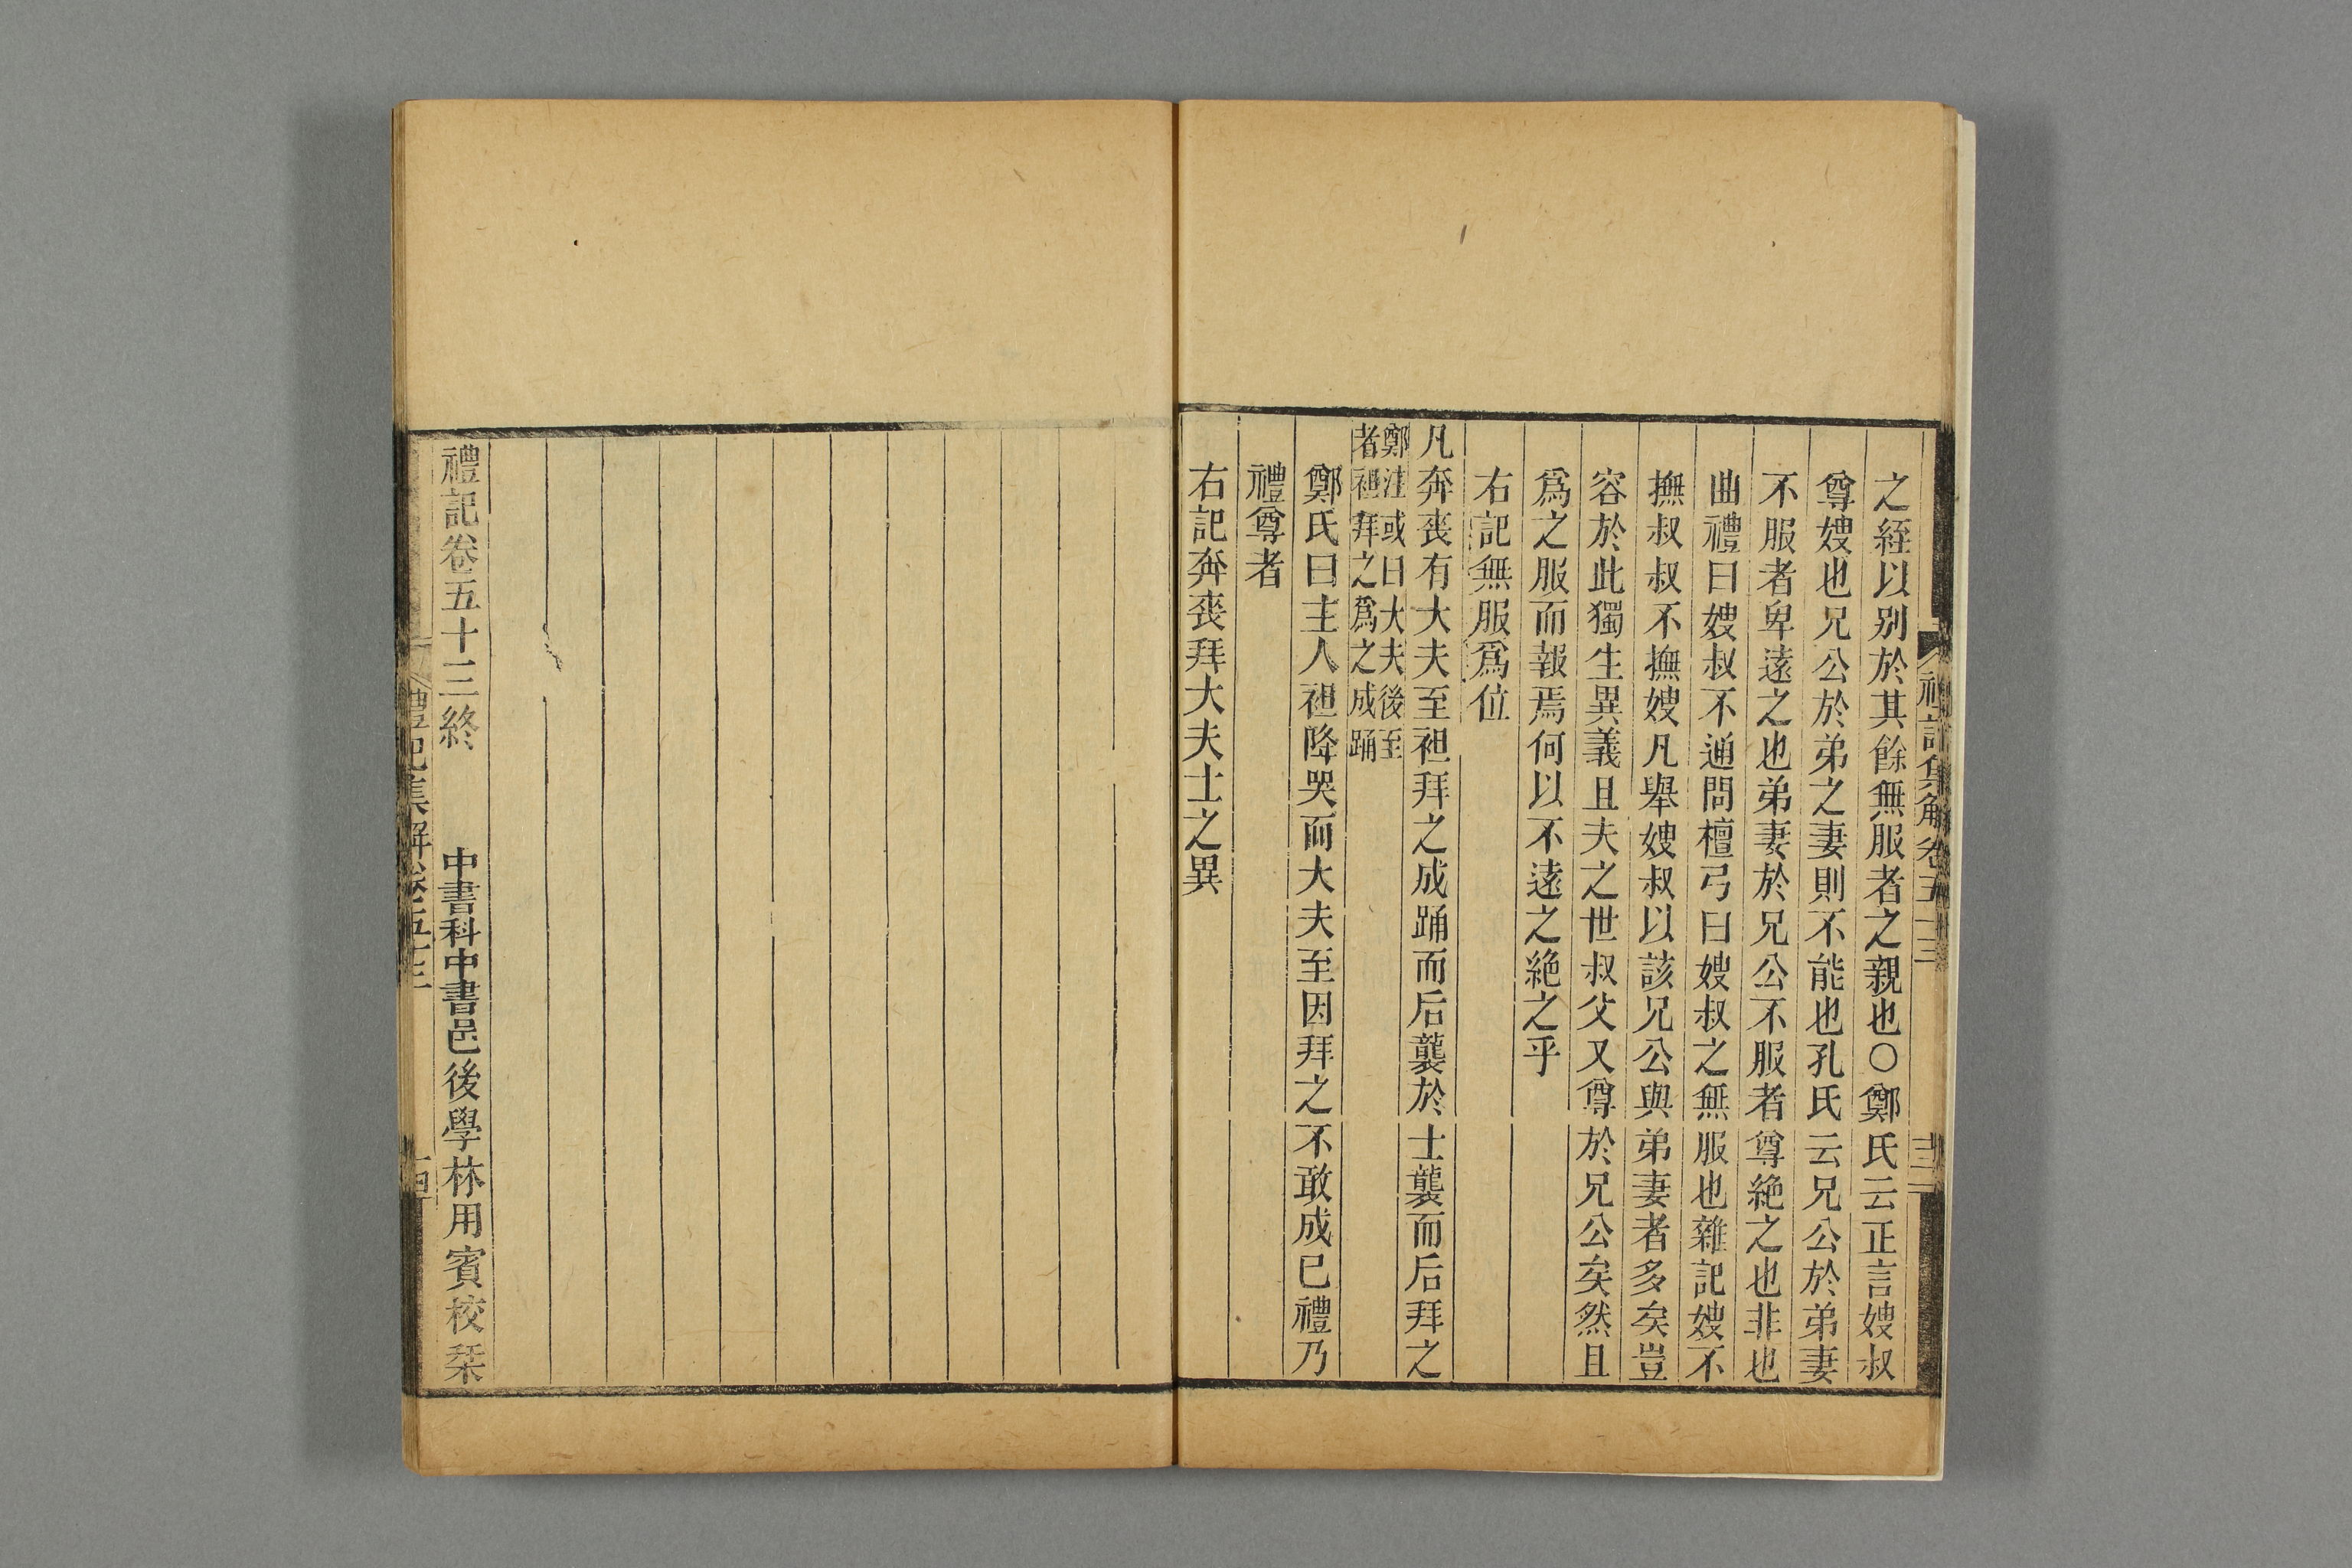 禮記集解卷五十三
之絰以别於其餘無服者之親也○鄭氏云正言嫂叔
尊嫂也兄公於弟之妻則不能也孔氏云兄公於弟妻
不服者卑遠之也弟妻於兄公不服者尊絶之也非也
曲禮曰嫂叔不通問檀弓曰嫂叔之無服也雜記嫂不
撫叔叔不撫嫂凡舉嫂叔以該兄公與弟妻者多矣豈
容於此獨生異義且夫之世叔父又尊於兄公矣然且
爲之服而報焉何以不遠之絶之乎
右記無服爲位
凡奔喪有大夫至袒拜之成踊而后襲於士襲而后拜之
鄭注或曰大夫後至
者袒拜之爲之成踊
鄭氏曰主人袒降哭而大夫至因拜之不敢成已禮乃
禮尊者
右記奔喪拜大夫士之異
禮記卷五十三終
中書科中書邑後學林用賓校栞
禮記集解卷五十三